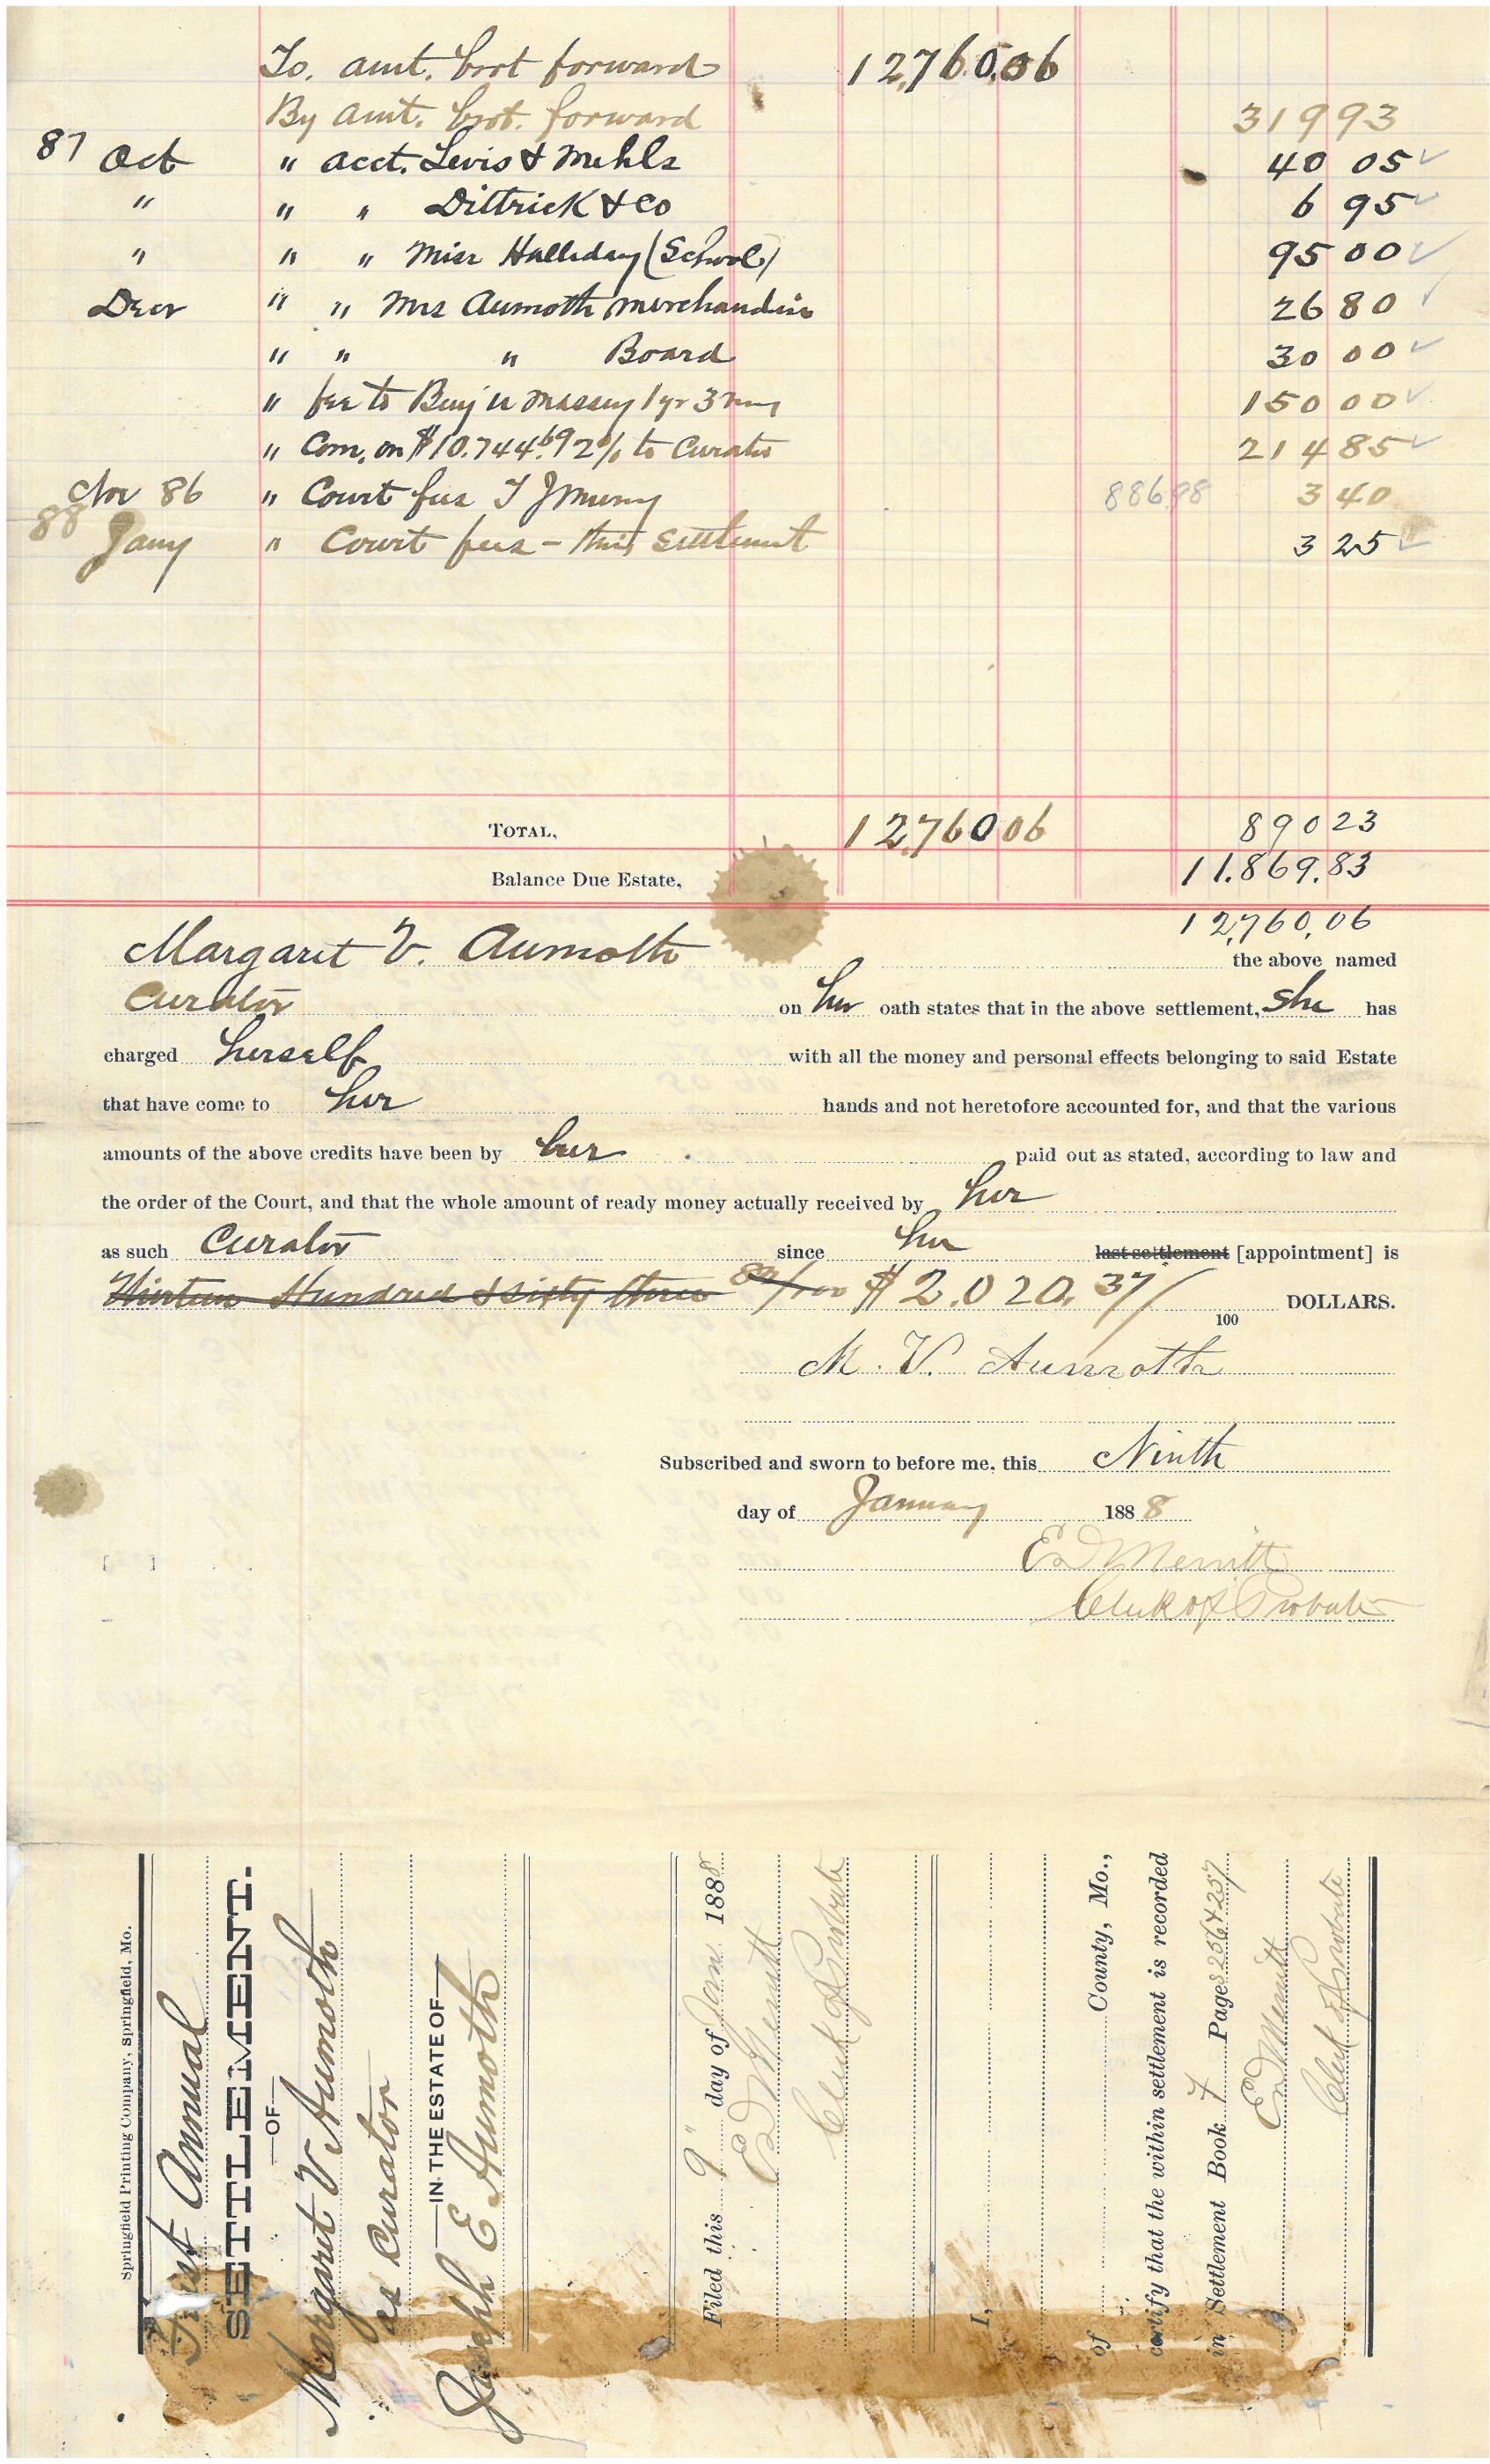 To. amt. brot forward 12,760.06
By amt. brot. forward 319 93
87 Oct " acct. Levis & Mehls 40 05 ✓
" " " Dittrick & Co 6 95 ✓
" " " Miss Halliday (School) 95 00 ✓
Decr " " Mrs Aumoth merchandise 26 80 ✓
" " " Board 30 00 ✓
" fee to Benj U Massey 1 yr 3 mos 150 00 ✓
" Com. on $10.744.69 2% to Curator 214 85 ✓
Nov 86 " Court fees T J Murry 886.98 3 40
88 Jany " Court fees - this settlement 3 25 ✓
TOTAL, 12,760 06 890 23
Balance Due Estate, 11.869.83
12,760.06
Margaret V. Aumoth the above named
Curator on her oath states that in the above settlement, she has
charged herself with all the money and personal effects belonging to said Estate
that have come to her hands and not heretofore accounted for, and that the various
amounts of the above credits have been by her paid out as stated, according to law and
the order of the Court, and that the whole amount of ready money actually received by her
as such Curator since her last settlement [appointment] is
Thirteen Hundred & sixty three 82/100 $2.020.37/100 DOLLARS.
M. V. Aumoth
Subscribed and sworn to before me, this Ninth
day of January 1888
E D Merritt
Clerk of Probate
Springfield Printing Company, Springfield, Mo.
First Annual
SETTLEMENT.
—OF—
Margaret V Aumoth
as Curator
—IN THE ESTATE OF—
Joseph E Aumoth
Filed this 9" day of Jan 1888
E D Merritt
Clerk of Probate
I,
of County, Mo.,
certify that the within settlement is recorded
in Settlement Book 7 Pages 256 & 257
E D Merritt
Clerk of Probate